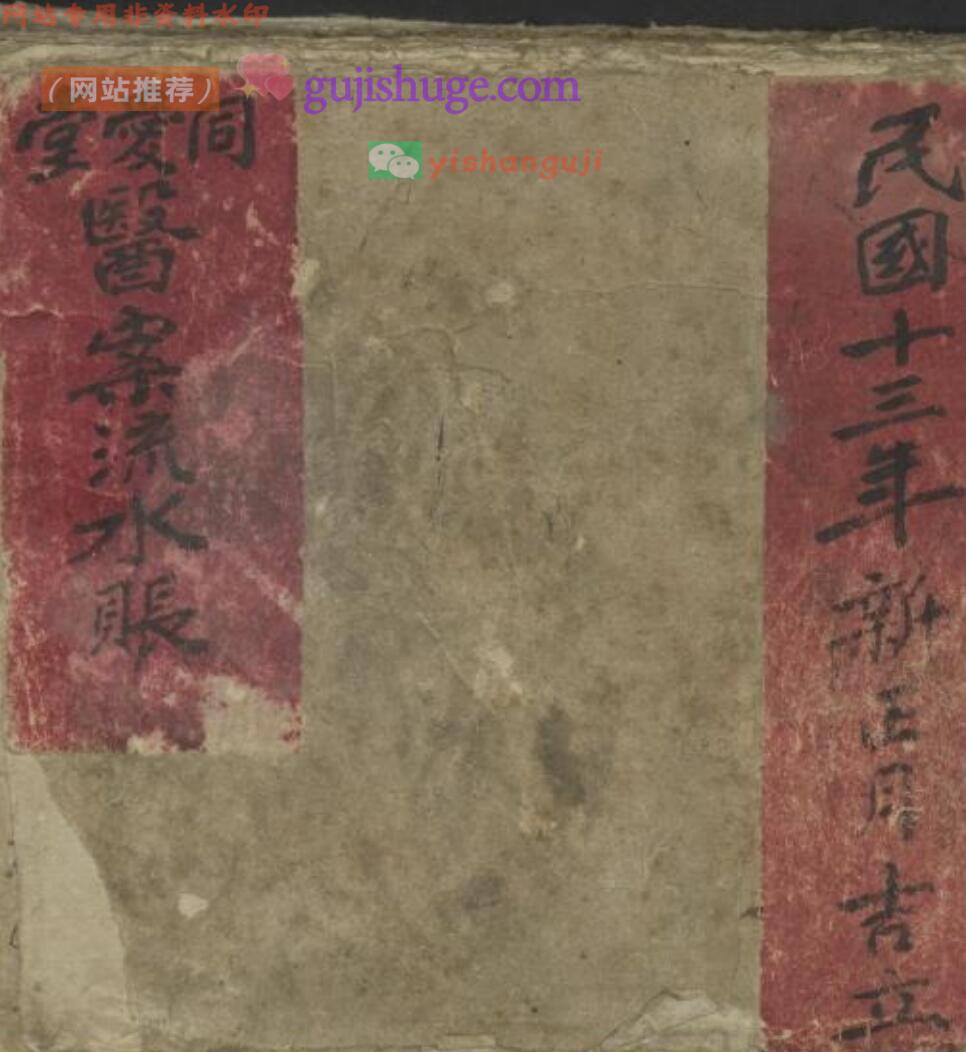 网站专用非资料水印
（网站推荐）
gujishuge.com
yishanguji
民國十三年新正月吉立
同愛堂
醫案流水賬